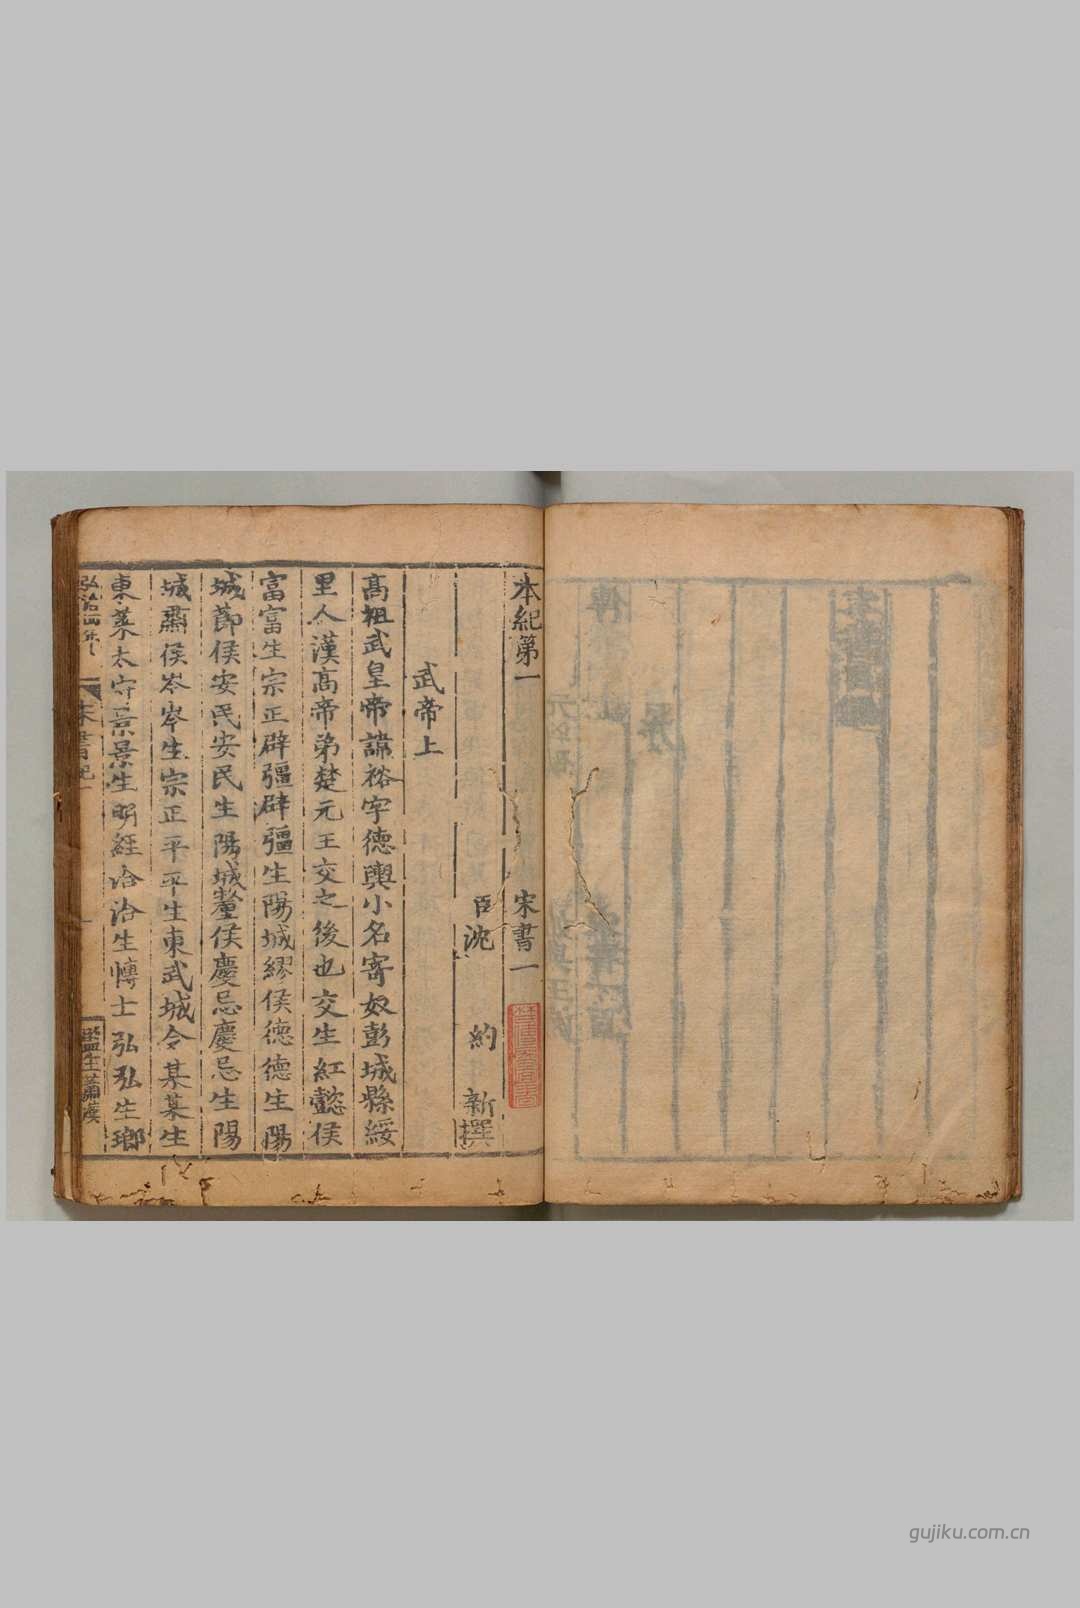 本紀第一 宋書一
臣沈約新撰
武帝上
髙祖武皇帝諱裕字德輿小名寄奴彭城縣綏
里人漢髙帝弟楚元王交之後也交生紅懿侯
富富生宗正辟彊辟彊生陽城繆侯德德生陽
城節侯安民安民生陽城釐侯慶忌慶忌生陽
城肅侯岑岑生宗正平平生東武城令某某生
東萊太守景景生明經洽洽生博士弘弘生瑯
弘治四年
宋書紀一
監生蕭漢
gujiku.com.cn